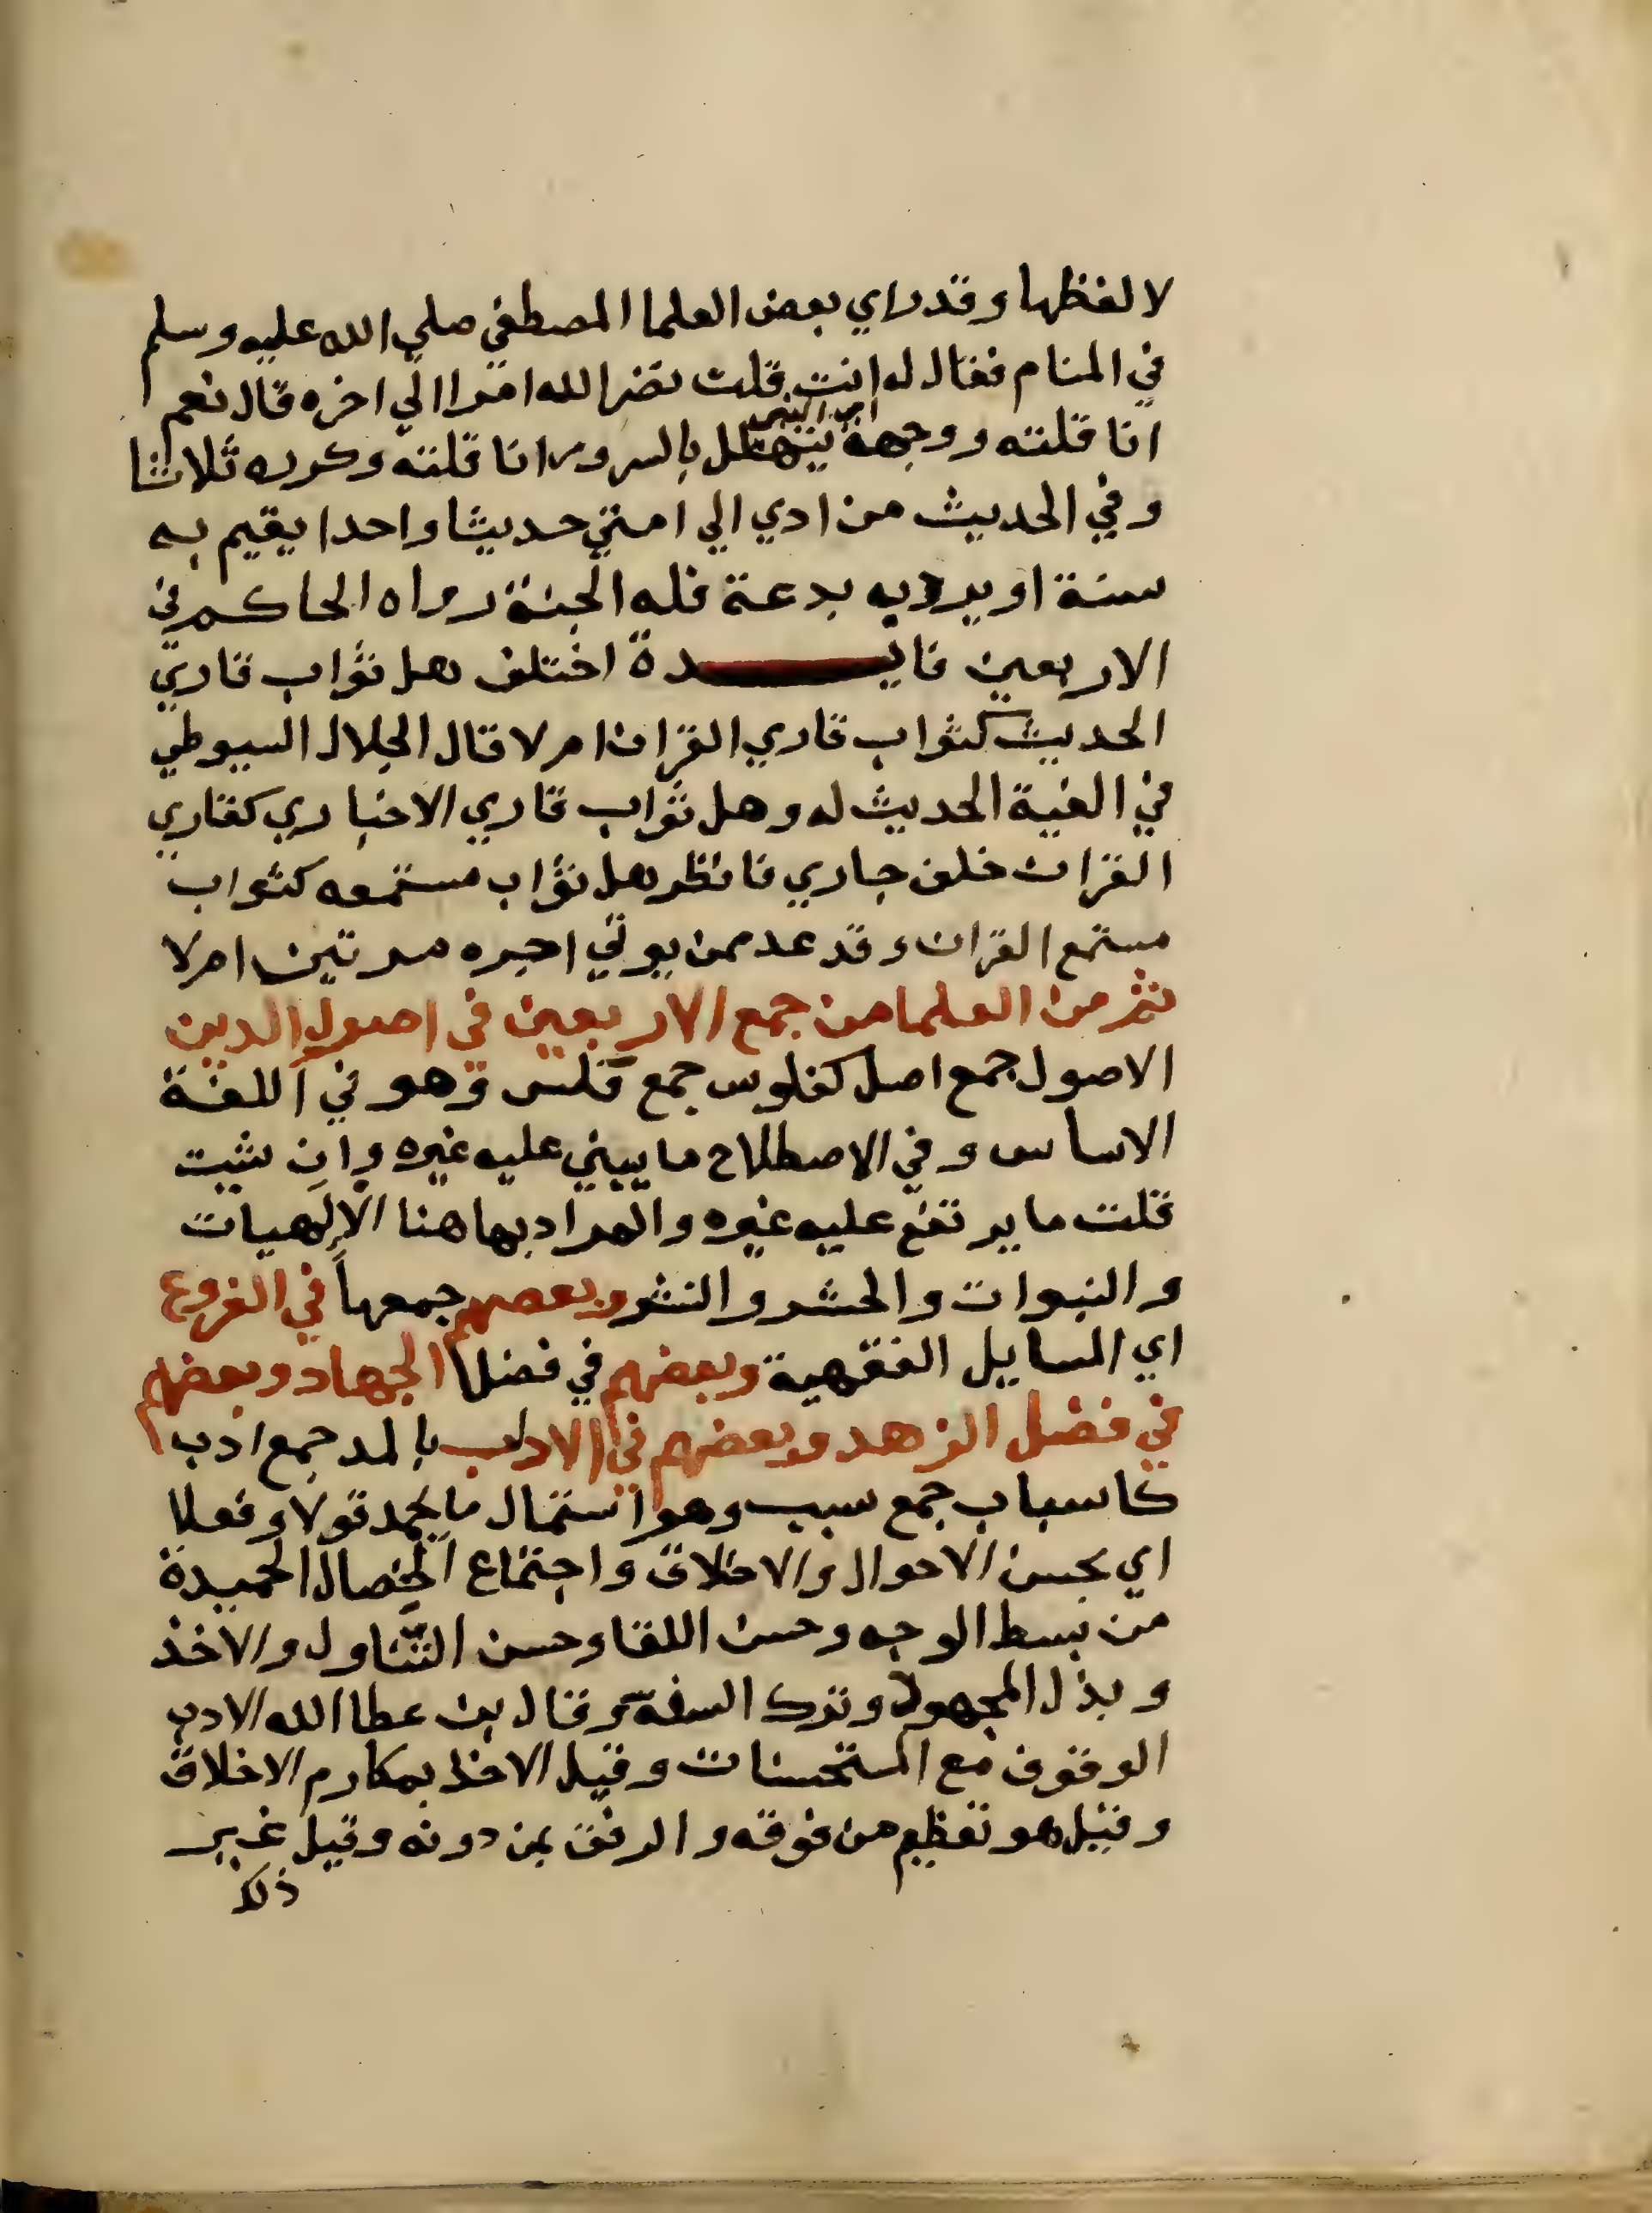 لا لفظها وقد راي بعض العلما المصطفي صلي الله عليه وسلم
في المنام فقال له انت قلت نضر الله امرا الي اخره قال نعم
اي النبي
انا قلته ووجهه يتهلل بالسرور انا قلته وكرره ثلاثا
وفي الحديث من ادي الي امتي حديثا واحدا يقيم به
سنة او يرد به بدعة فله الجنة رواه الحاكم في
الاربعين فايـــدة اختلف هل ثواب قاري
الحديث كثواب قاري القران ام لا قال الجلال السيوطي
في الفية الحديث له وهل ثواب قاري الاخباري كقاري
القران خلف جاري فانظر هل ثواب مستمعه كثواب
مستمع القران وقد عد ممن يوتي اجره مرتين ام لا
ثم من العلما من جمع الاربعين في اصول الدين
الاصول جمع اصل كفلوس جمع فلس وهو في اللغة
الاساس وفي الاصطلاح ما يبني عليه غيره وان شيت
قلت ما يرتفع عليه غيره والمراد بها هنا الإلهيات
والنبوات والحشر والنشر وبعضهم جمعها في الفروع
اي المسايل الفقهية وبعضهم في فضل الجهاد وبعضهم
في فضل الزهد وبعضهم في الاداب بالمد جمع ادب
كاسباب جمع سبب وهو استعمال ما يحمد قولا وفعلا
اي بحسن الاحوال والاخلاق واجتماع الخصال الحميدة
من بسط الوجه وحسن اللقا وحسن التناول والاخذ
وبذل المجهول وترك السفه وقال بن عطا الله الادب
الوقوف مع المستحسنات وقيل الاخذ بمكارم الاخلاق
وقيل هو تعظيم من فوقه والرفق بمن دونه وقيل غير
ذلك